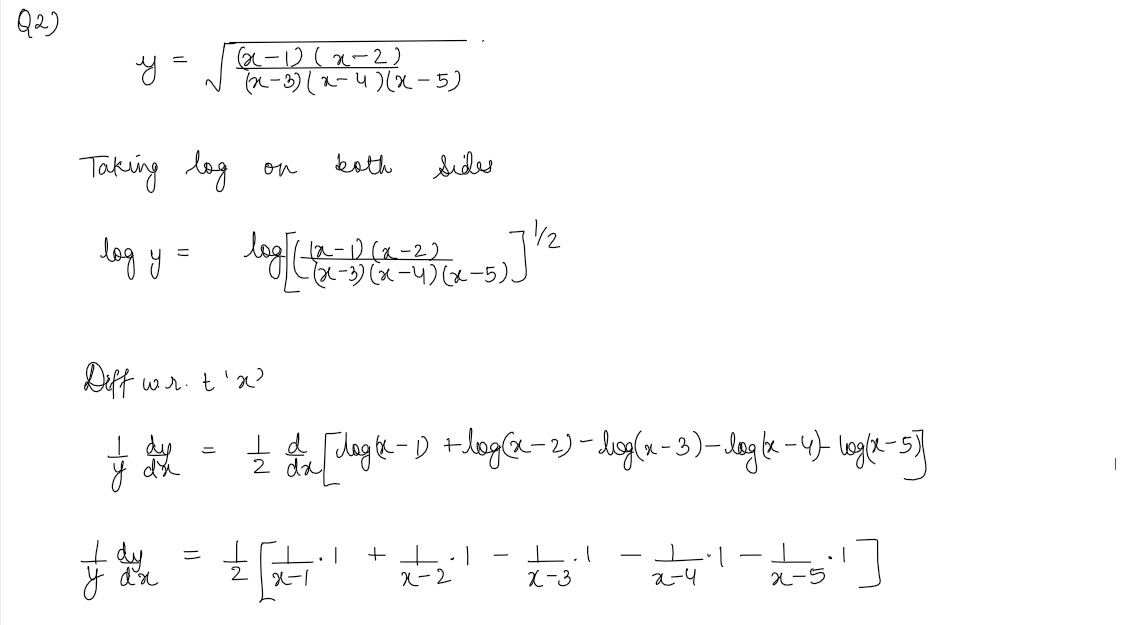 Q2)
y = √((x-1)(x-2) / (x-3)(x-4)(x-5))
Taking log on both sides
log y = log[((x-1)(x-2) / (x-3)(x-4)(x-5)]^1/2
Diff w.r.t 'x'
1/y dy/dx = 1/2 d/dx [log(x-1) + log(x-2) - log(x-3) - log(x-4) - log(x-5)]
1/y dy/dx = 1/2 [1/(x-1) · 1 + 1/(x-2) · 1 - 1/(x-3) · 1 - 1/(x-4) · 1 - 1/(x-5) · 1]